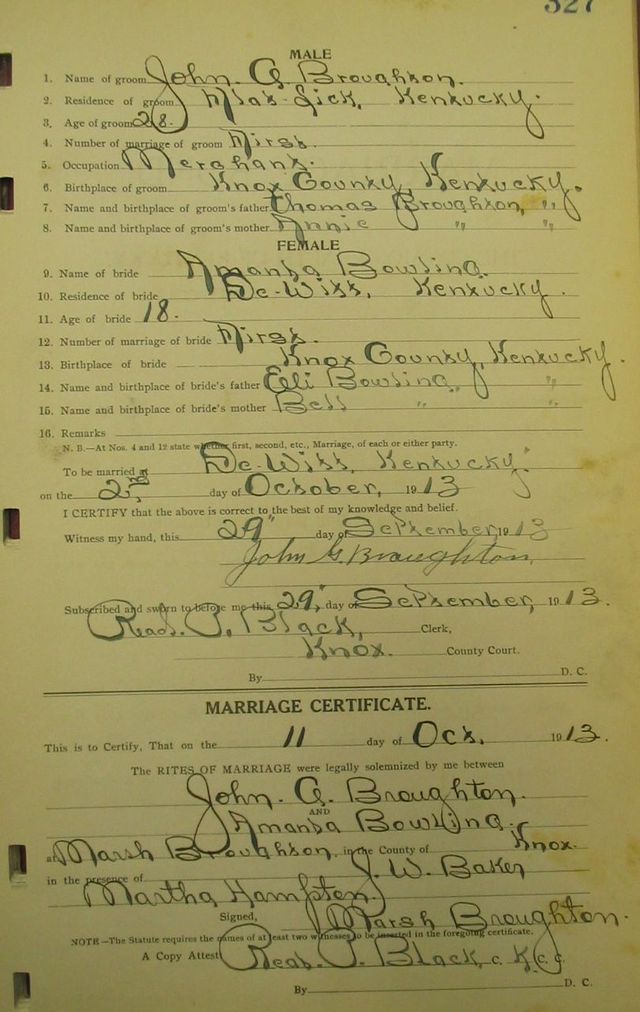 327
MALE
1. Name of groom John. G Broughton.
2. Residence of groom Flat-Lick, Kentucky.
3. Age of groom 28.
4. Number of marriage of groom First.
5. Occupation Merchant.
6. Birthplace of groom Knox County, Kentucky.
7. Name and birthplace of groom's father Thomas Broughton, " "
8. Name and birthplace of groom's mother Annie " "
FEMALE
9. Name of bride Amanda Bowling.
10. Residence of bride De-Witt, Kentucky.
11. Age of bride 18.
12. Number of marriage of bride First.
13. Birthplace of bride Knox County, Kentucky.
14. Name and birthplace of bride's father Elli Bowling, " "
15. Name and birthplace of bride's mother Bell " "
16. Remarks
N. B.—At Nos. 4 and 12 state whether first, second, etc., Marriage, of each or either party.
To be married at De-Witt, Kentucky.
on the 2nd day of October, 1913
I CERTIFY that the above is correct to the best of my knowledge and belief.
Witness my hand, this 29" day of September, 1913
John G Broughton,
Subscribed and sworn to before me this 29," day of September, 1913.
Read. P. Black, Clerk,
Knox. County Court.
By D. C.
MARRIAGE CERTIFICATE.
This is to Certify, That on the 11 day of Oct. 1913.
The RITES OF MARRIAGE were legally solemnized by me between
John. G. Broughton.
AND
Amanda Bowling.
at Marsh Broughton. in the County of Knox.
in the presence of J. W. Baker
Martha Hampton.
Signed, Marsh Broughton.
NOTE—The Statute requires the names of at least two witnesses to be inserted in the foregoing certificate.
A Copy Attest Read. P. Black, C. K. C. C.
By D. C.